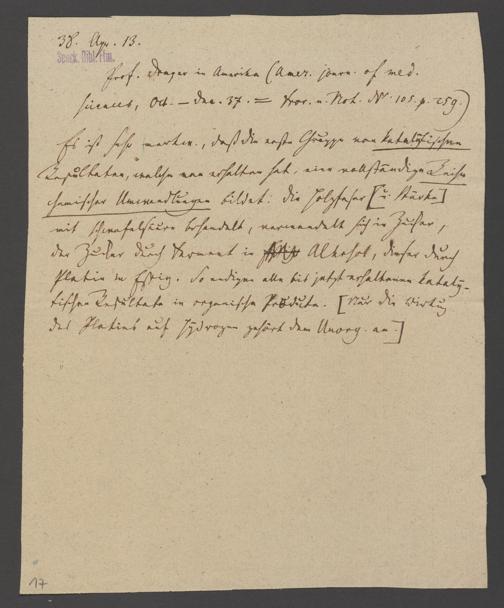 38. Apr. 13.
Senck. Bibl. Ffm.
Prof. Draper in Amerika (Amer. journ. of med.
sciences, Oct. — Dec. 37. = Fror. n. Not. Nr. 105. p. 259.)
Es ist sehr merkw., daß die erste Gruppe von katalytischen
Resultaten, welche man erhalten hat, eine vollständige Reihe
chemischer Umwandlungen bildet: die Holzfaser [u. Stärke]
mit Schwefelsäure behandelt, verwandelt sich in Zucker,
der Zucker durch Ferment in Alkohol, dieser durch
Platin in Essig. So endigen alle bis jetzt erhaltenen kataly-
tischen Resultate in organische Produkte. [Nur die Wirkung
des Platins auf Hydrogen gehört dem Unorg. an.]
17